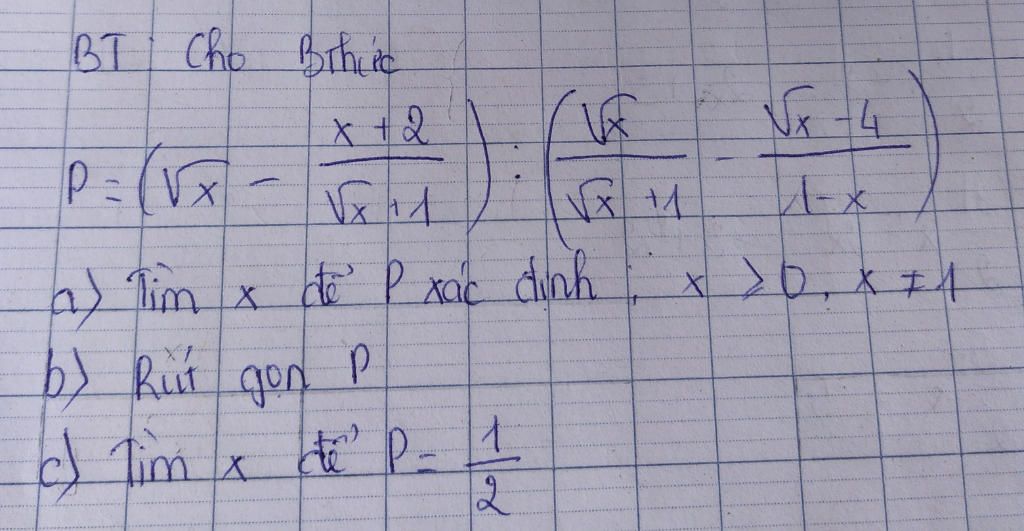 BT : Cho Bthức
P = (√x - (x + 2)/(√x + 1)) : (√x/(√x + 1) - (√x - 4)/(1 - x))
a) Tìm x để P xác định : x ≥ 0, x ≠ 1
b) Rút gọn P
c) Tìm x để P = 1/2